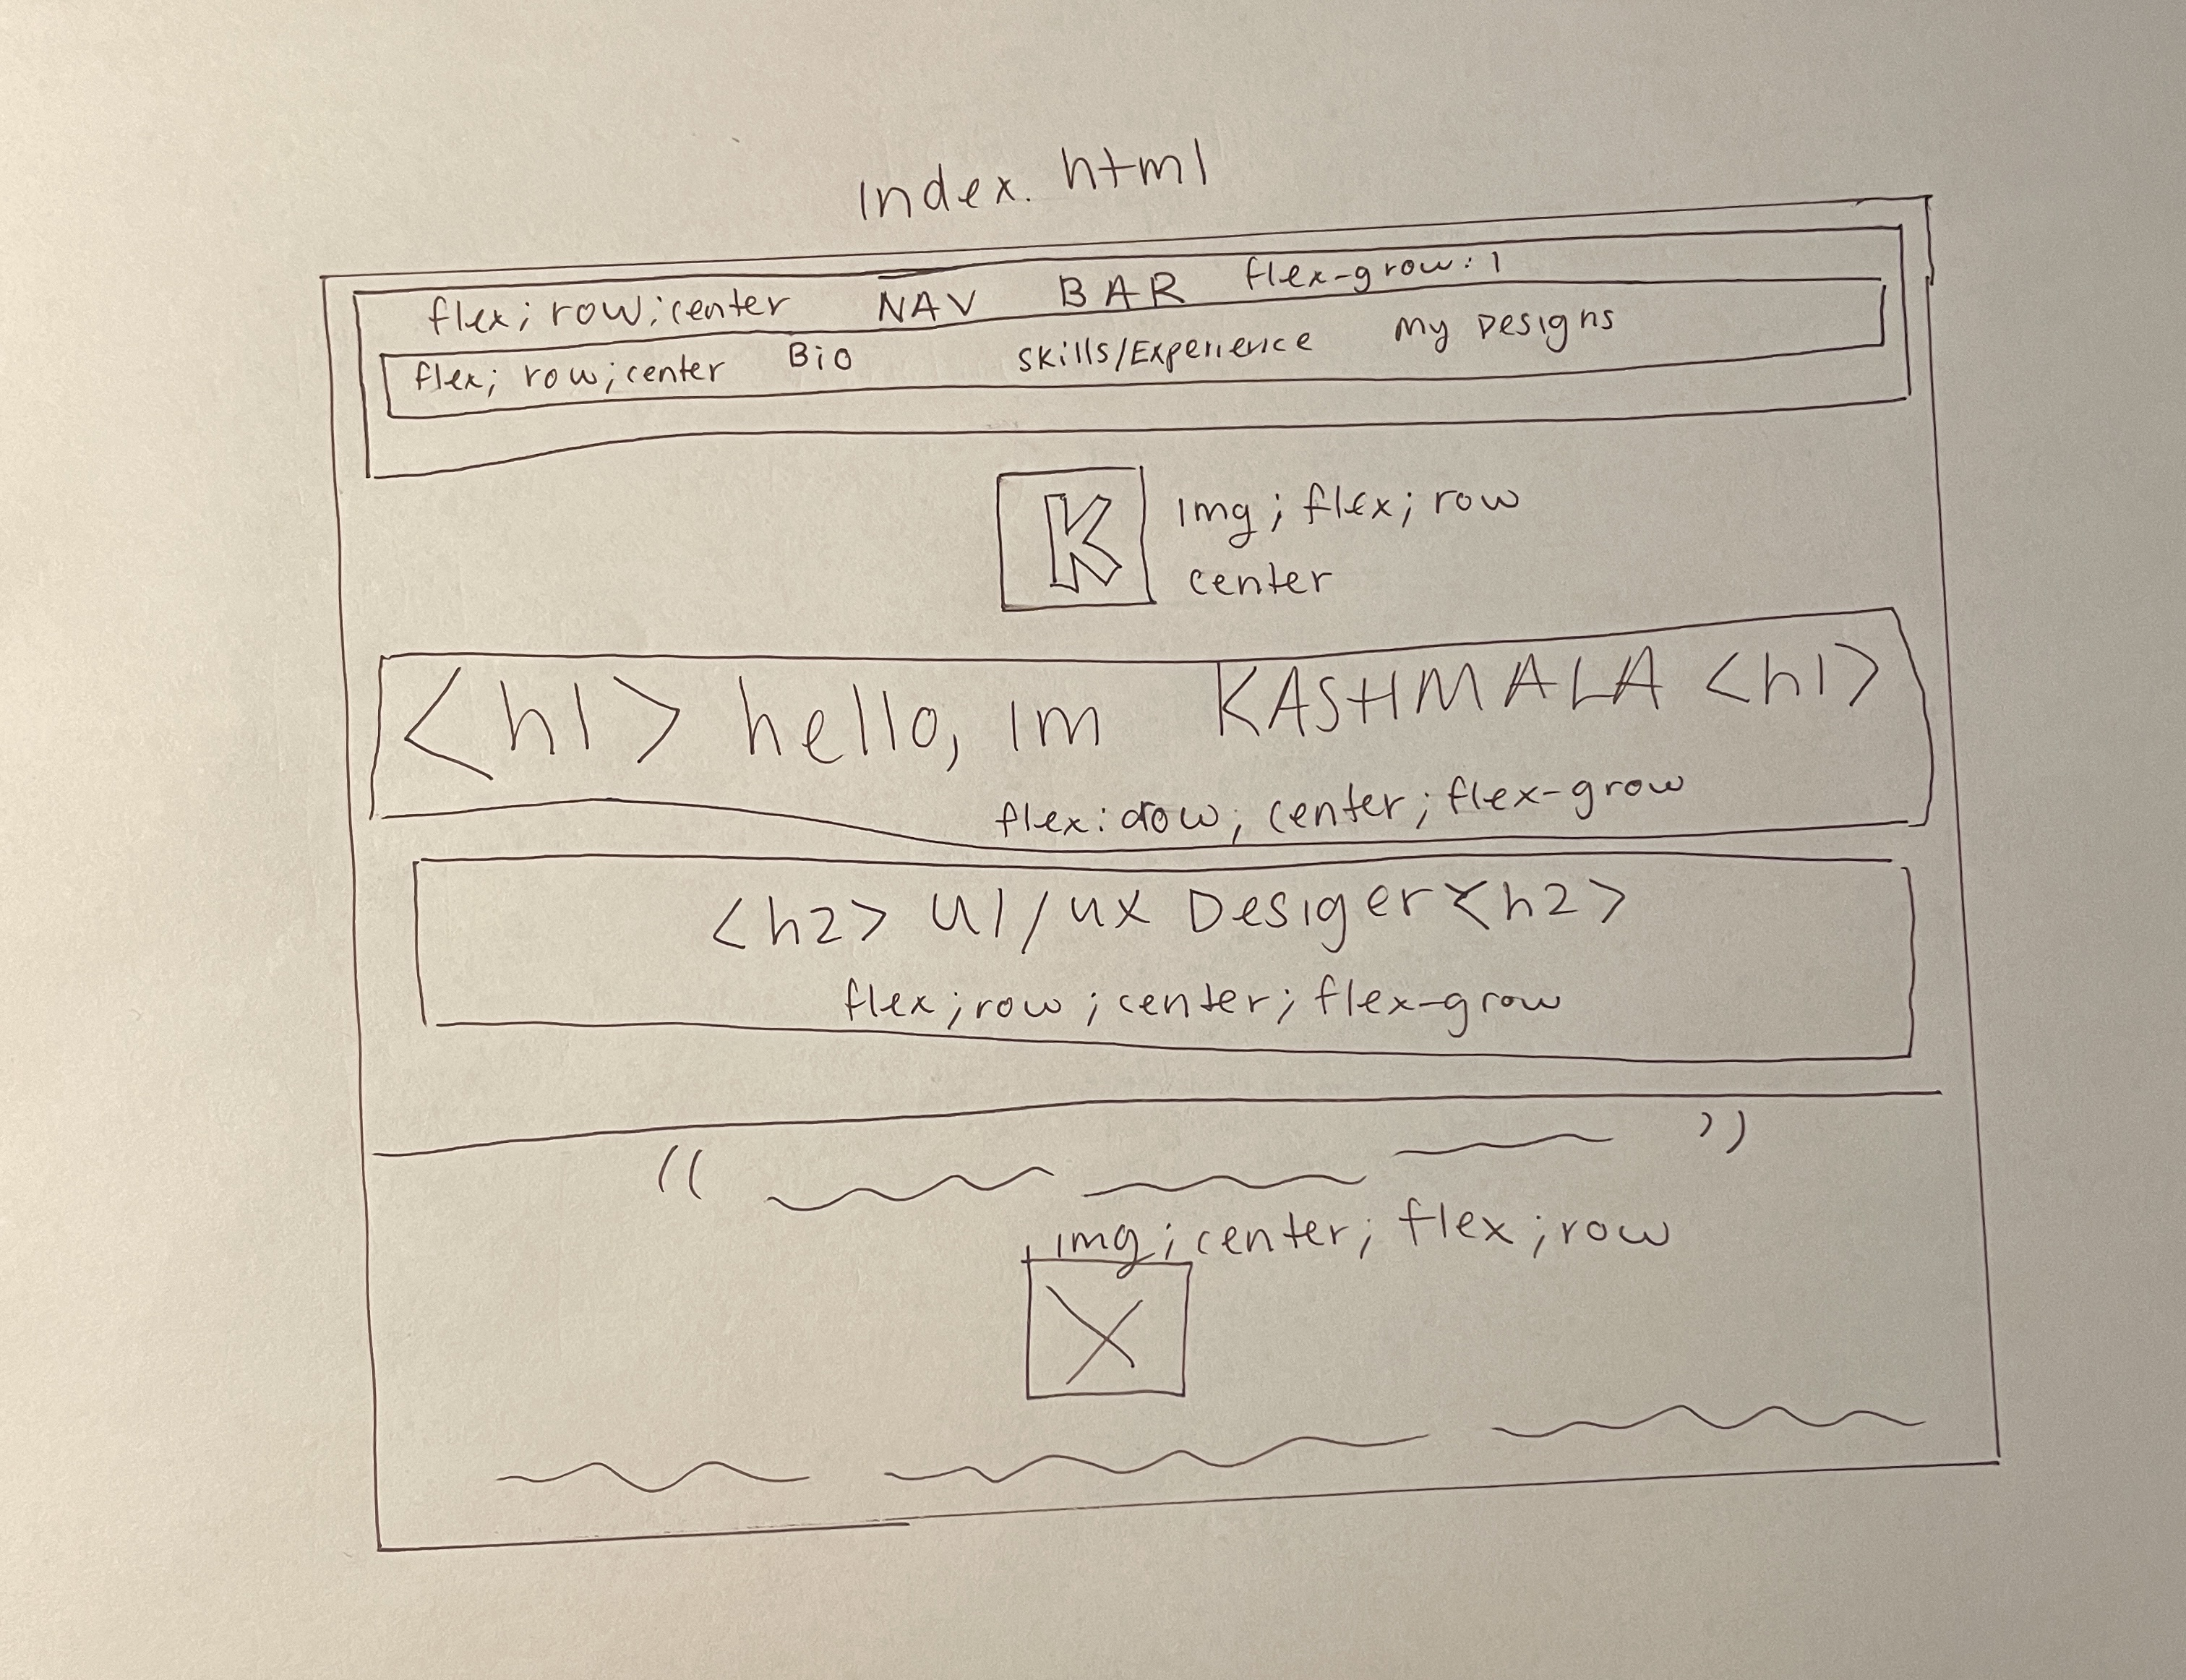 Index. html
flex; row; center NAV BAR flex-grow: 1
flex; row; center Bio skills/Experience My Designs
K img; flex; row
center
<h1> hello, Im KASHMALA <h1>
flex: row; center; flex-grow
<h2> UI/UX Desiger <h2>
flex; row; center; flex-grow
" "
img; center; flex; row